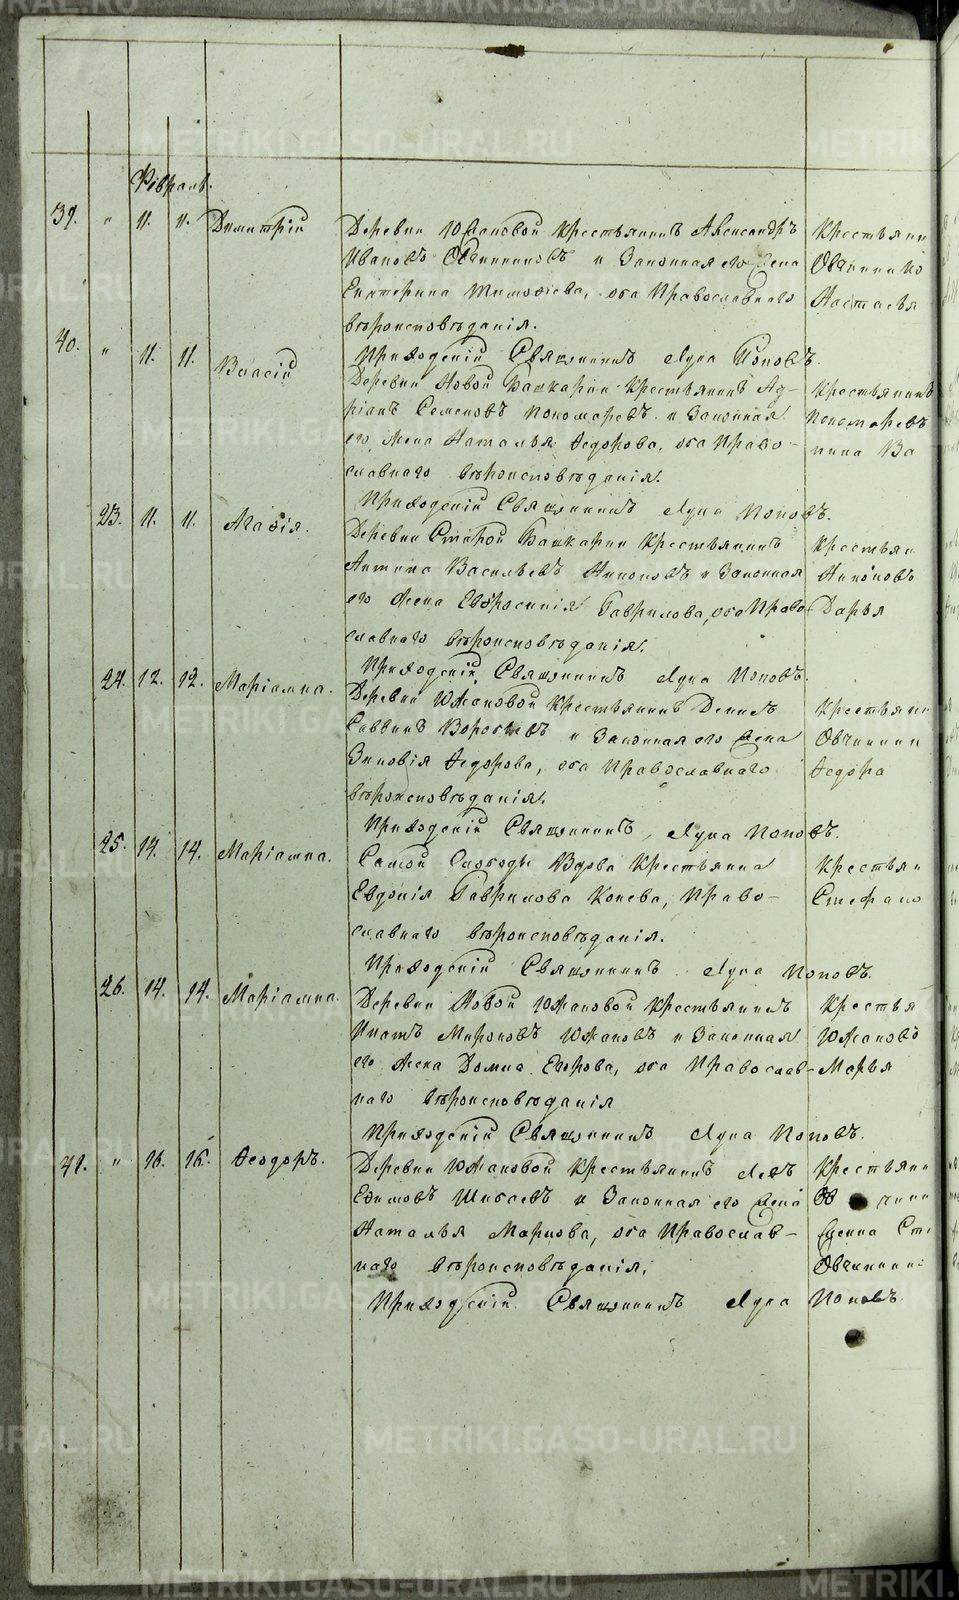 Февраль.
39. " 11. 11. Димитрій Деревни Южаковой Крестьянинъ Александръ Крестьянин
Ивановъ Овчинниковъ и Законная его Жена Овчиннико
Екатерина Тимофіева, оба Православнаго Настасья
вѣроисповѣданія.
Приходскій Священникъ Лука Поповъ.
40. " 11. 11. Власій Деревни Новой Башкарки Крестьянинъ Ад- Крестьянинъ
ріанъ Семеновъ Пономаревъ и Законная Пономаревъ
его Жена Наталья Федорова, оба Право- нина Ва
славнаго вѣроисповѣданія.
Приходскій Священникъ Лука Поповъ.
23. 11. 11. Агафія. Деревни Старой Башкарки Крестьянинъ Крестьян
Антипа Васильевъ Анконовъ и Законная
его Жена Евфросинія Гаврилова, оба Право- Дарья
славнаго вѣроисповѣданія.
Приходскій Священникъ Лука Поповъ.
24. 12. 12. Маріамна. Деревни Южаковой Крестьянинъ Денисъ Крестьянин
Саввинъ и Законная его Жена Овчинник
Зиновія Федорова, оба Православнаго Федора
вѣроисповѣданія.
Приходскій Священникъ Лука Поповъ.
25. 14. 14. Маріамна. Самой Слободы Вдова Крестьянка Крестьян
Евдокія Гаврилова Конева, Право- Стефано
славнаго вѣроисповѣданія.
Приходскій Священникъ Лука Поповъ.
26. 14. 14. Маріамна. Деревни Новой Южаковой Крестьянинъ Крестья
Игнатъ Мироновъ Южаковъ и Законная Южаковъ
его Жена Домна Егорова, оба Православ- Марья
наго вѣроисповѣданія
Приходскій Священникъ Лука Поповъ.
41. " 16. 16. Феодоръ. Деревни Южаковой Крестьянинъ Левъ Крестьяни
Ефимовъ Шигаевъ и Законная его Жена Ов чинн
Наталья Маркова, оба Православ- Ст
наго вѣроисповѣданія. Овчинни
Приходскій Священникъ Лука Поповъ.
METRIKI.GASO-URAL.RU